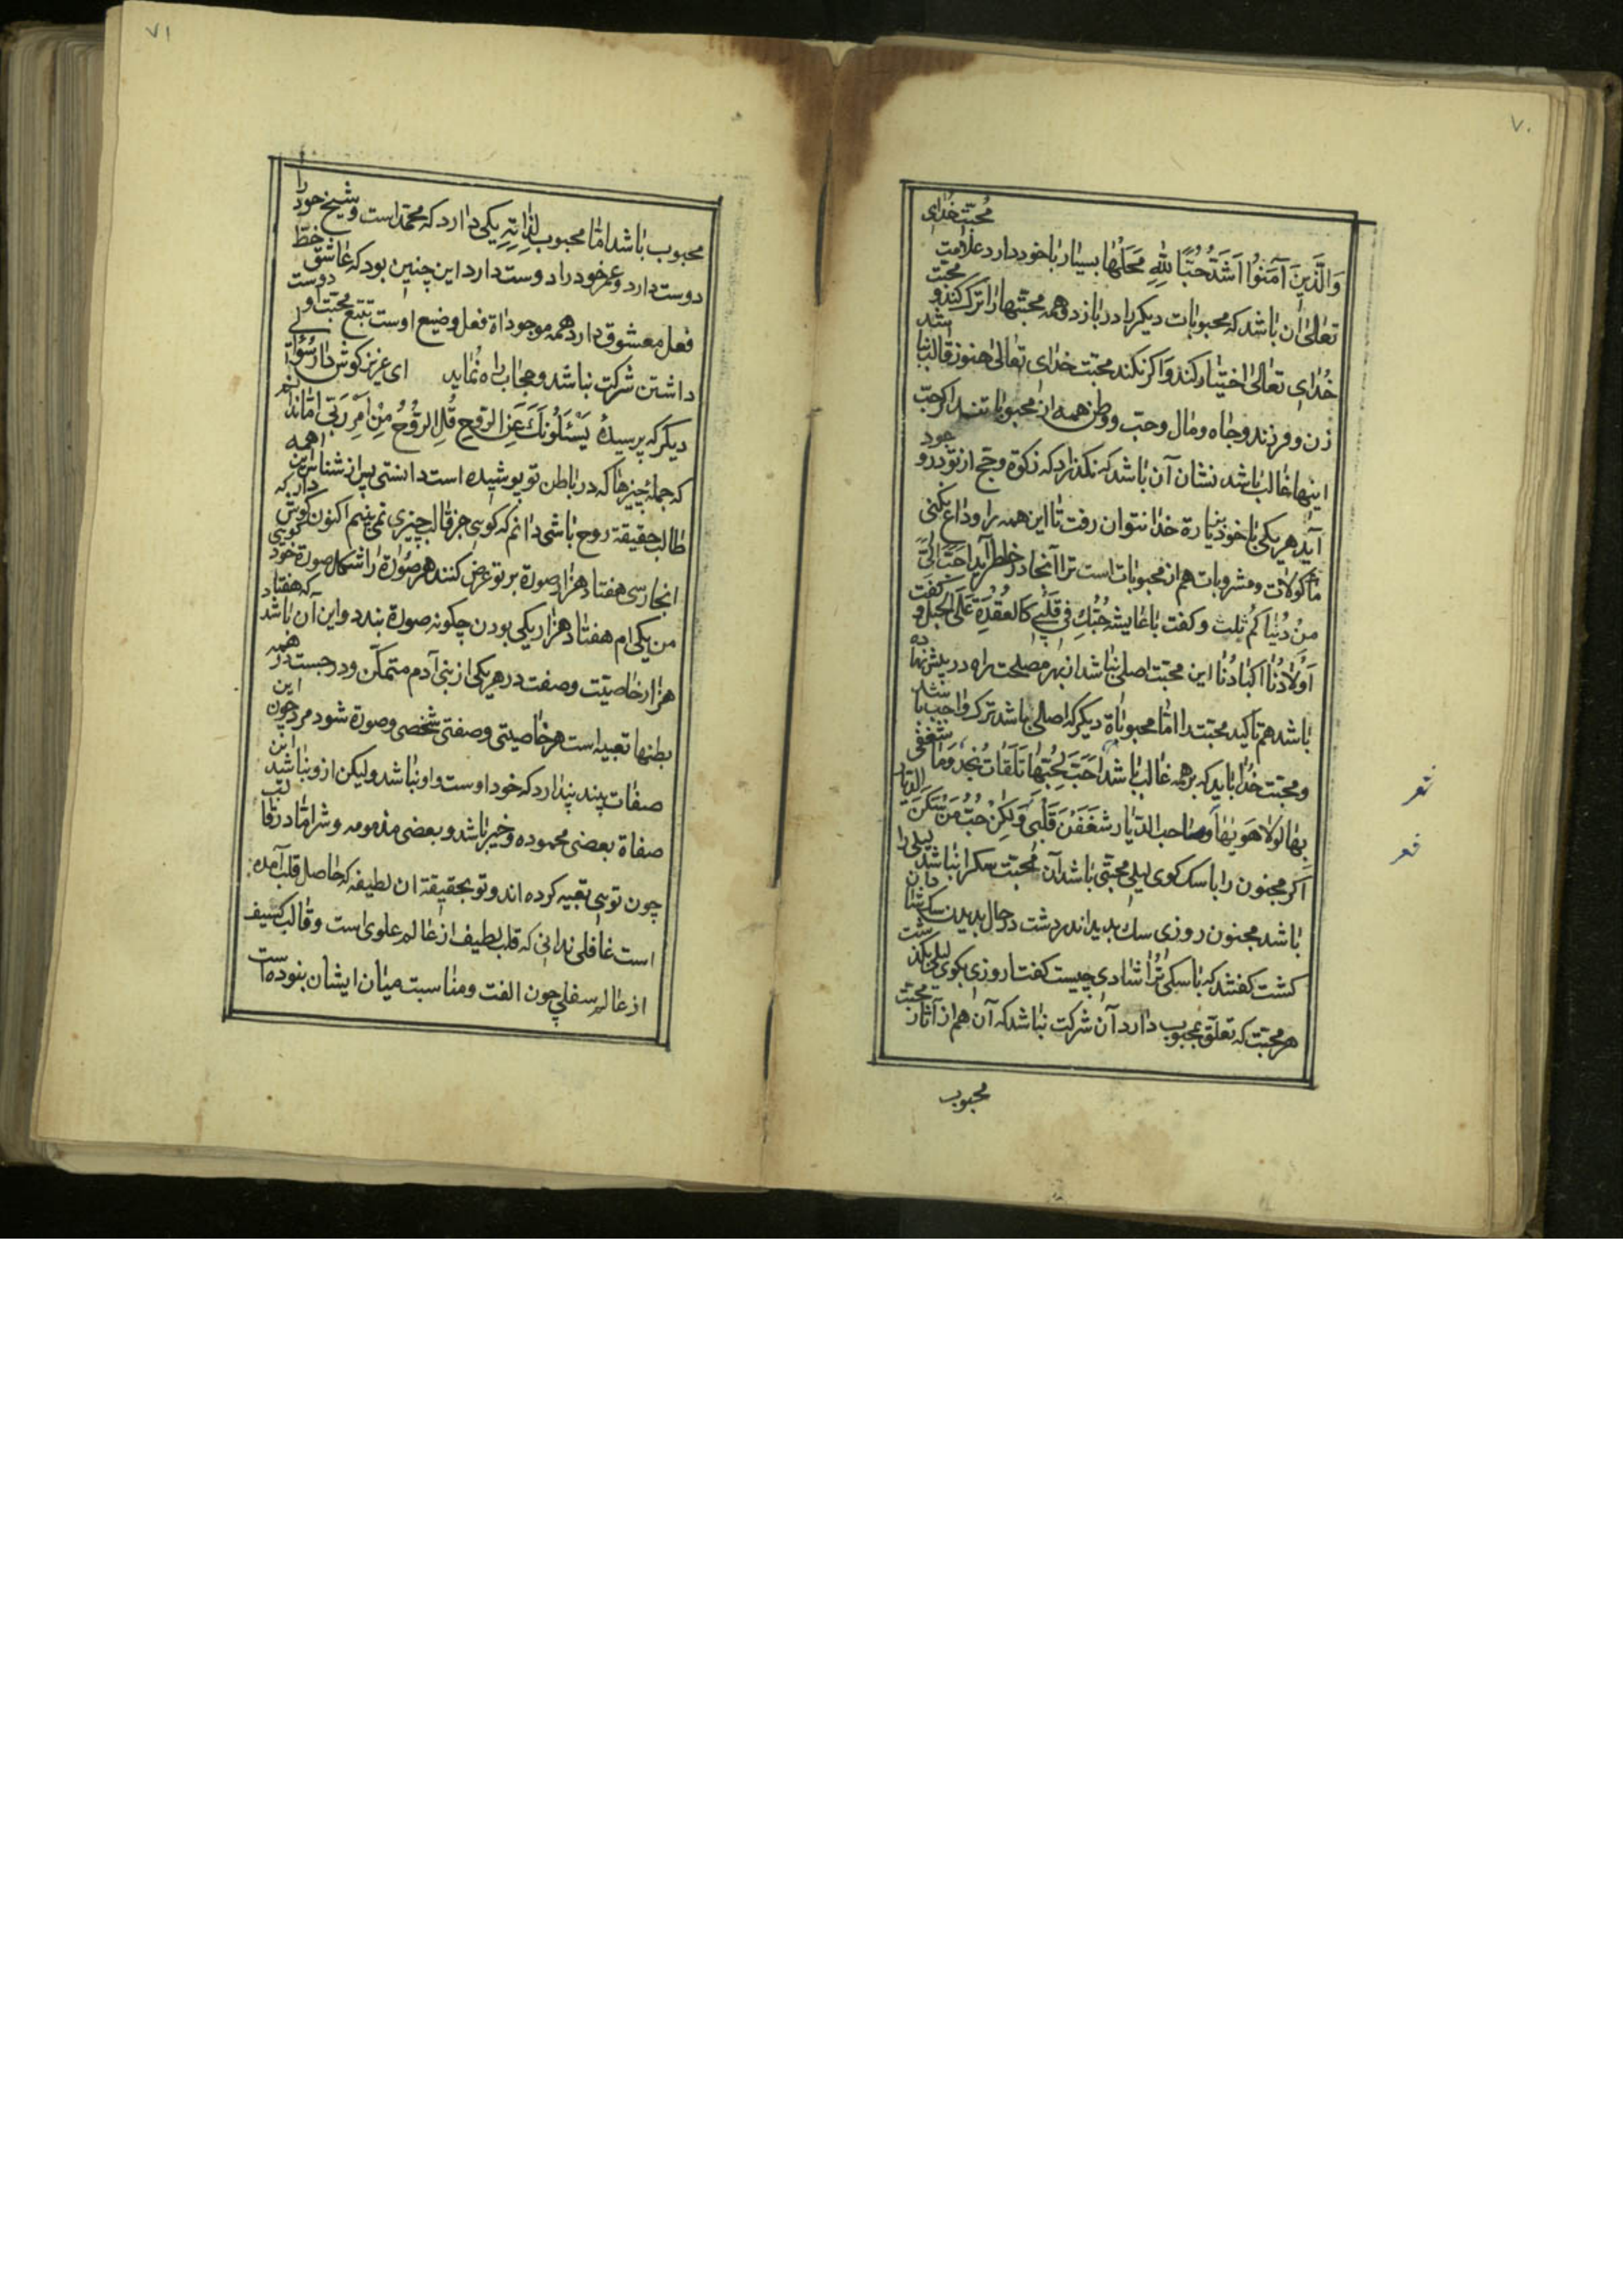 ٧٠
محبّت خدای
وَالَّذِینَ آمَنُوا اَشَدُّ حُبًّا لِلّهِ مَحَلّها بسیار با خود دارد علامت
تعالی ان باشد که محبوبات دیکر را در بازد و همه محبّتها را ترک کند و محبّت
خُدای تعالی اختیار کند وَ اکر نکند محبّت خدای تعالی هنوز غالب نباشد
زن و فرزند و جاه و مال و حبّ وطن همه از محبوبا تند اکر حبّ
اینها غالب باشد نشان آن باشد که نکذارد که زکوة و حج از تو در وجود
آید هر یکی با خود بزیارة خدا نتوان رفت تا این همه را وداع نکنی
ماکولات و مشروبات هم از محبوبات است ترا آنجا در خاطر آید اَحَبُّ اِلَیَّ
مِنْ دُنْیَاکُم ثلث و کفت با عایشه حُبُّكِ فی قَلْبِی کَالعُقْدَةِ عَلَی الحبل و کفت
اَوْلَادُنَا اَکبَادُنَا این محبّت اصلی نباشد از بهر مصلحت راه در پیش نهاده
باشد هم تاکید محبّت را امّا محبوباة دیکر که اصالی باشد ترک واجب باشد
و محبّت خدا باید که بر همه غالب باشد اُحَبِّ لِحُبّها تَلَقات نُجدٍ وَمَا شغفی
بِهَا لَولَا هَوَیهَا وصاحب الدّیار شَغَفْنَ قَلْبی وَلکِنْ حُبُّ مَنْ سَکَنَ الدِّیَار
اکر مجنون را با سک کوی لیلی محبّتی باشد آن محبّت سک را نباشد لیلی را
باشد مجنون روزی سك بدید اندر دشت در حال بدیدن سک شادان
کشت کفتند که با سکی تُرا شادی چیست کفتا روزی بکوی لیلی بکذشت
هر محبّت که تعلّق بمحبوب دارد آن شرکت نباشد که آن هم از آثار محبّت
محبوب
شعر
شعر
٧١
محبوب باشد امّا محبوب لِذَاتِهِ یکی دارد که محمّد است و شیخ خود را
دوست دارد و عمر خود را دوست دارد این چنین بود که عاشق خطّ
فعل معشوق دارد همه موجوداة فعل و ضیع اوست بتبع محبّت او دوست
داشتن شرکت نباشد و حجاب راه نماید ای عزیز کوش دار سُؤال
دیکر که پرسیدهٔ یَسْئَلُونَكَ عَنِ الرّوحِ قُلِ الرُّوحُ مِنْ اَمْرِ رَبّی امّا ندانم
که جملهٔ چیزها که در باطن تو پوشیده است دانستی پس از شناس این همه
طالب حقیقة روح باشی دانم که کوی جز قالب چیزی نمی بینم اکنون کوش دار که
انجا رسی هفتاد هزار صورة بر تو عرض کنند هر صوُرة را شکل صورة خود کویی
من یکی ام هفتاد هزار یکی بودن چکونه صورة بندد و این آن باشد که هفتاد
هزار خاصیّت و صفت در هر یکی از بنی آدم متمکّن و درجست در همه
بطنها تعبیه است هر خاصیتی و صفتی شخصی و صورة شود مرد چون این
صفات بیند پندارد که خود اوست و او نباشد ولیکن ازو باشد این
صفاة بعضی محموده و خیر باشد و بعضی مذمومه و شر امّا در قالب
چون تویی تعبیه کرده اند و تو بحقیقة ان لطیفه که حاصل قلب آمده
است غافلی ندانی که قلب لطیف از عالم علوی است و قالب کسیف
از عالم سفلی چون الفت و مناسبت میان ایشان بنوده است